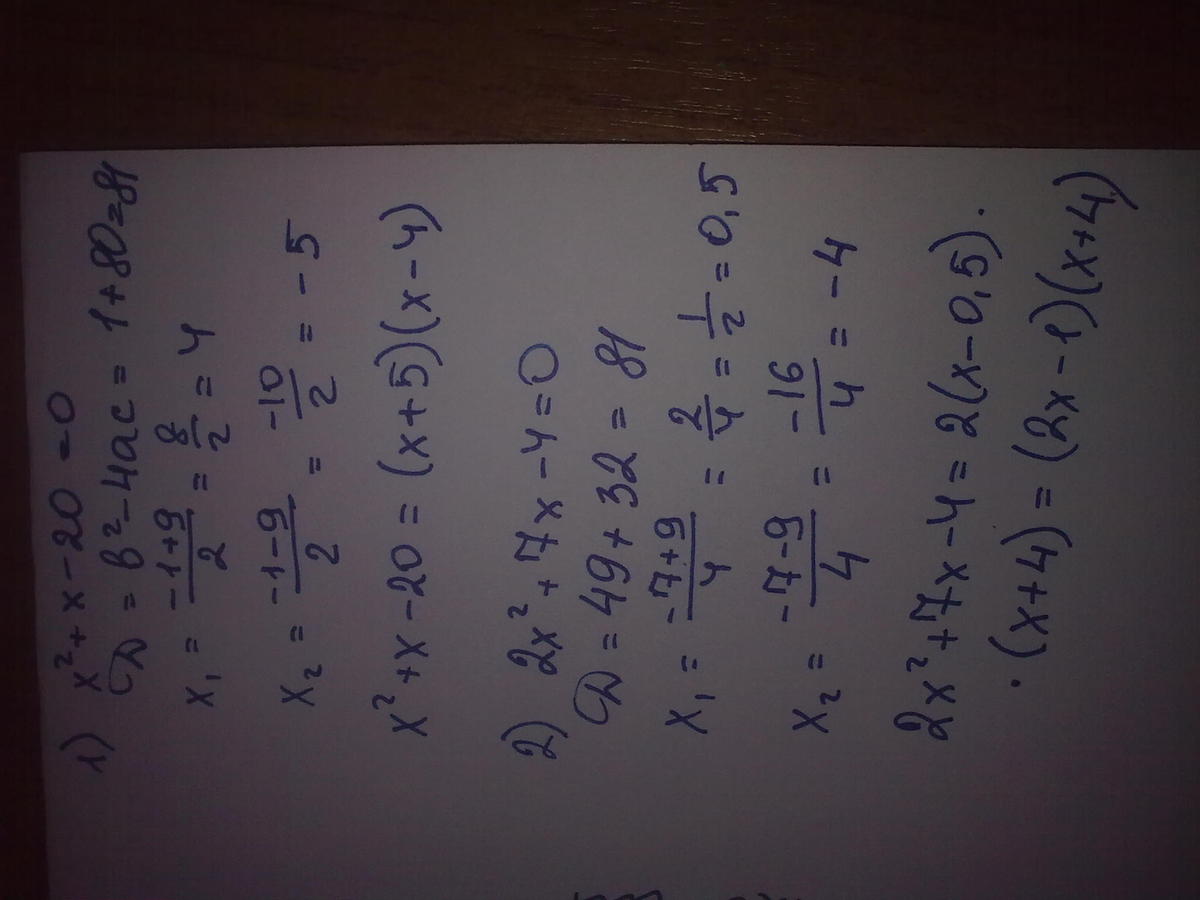 1) x² + x - 20 = 0
D = в² - 4ac = 1 + 80 = 81
x₁ = (-1+9)/2 = 8/2 = 4
x₂ = (-1-9)/2 = -10/2 = -5
x² + x - 20 = (x + 5)(x - 4)
2) 2x² + 7x - 4 = 0
D = 49 + 32 = 81
x₁ = (-7+9)/4 = 2/4 = 1/2 = 0,5
x₂ = (-7-9)/4 = -16/4 = -4
2x² + 7x - 4 = 2(x - 0,5) ·
· (x+4) = (2x - 1)(x+4)